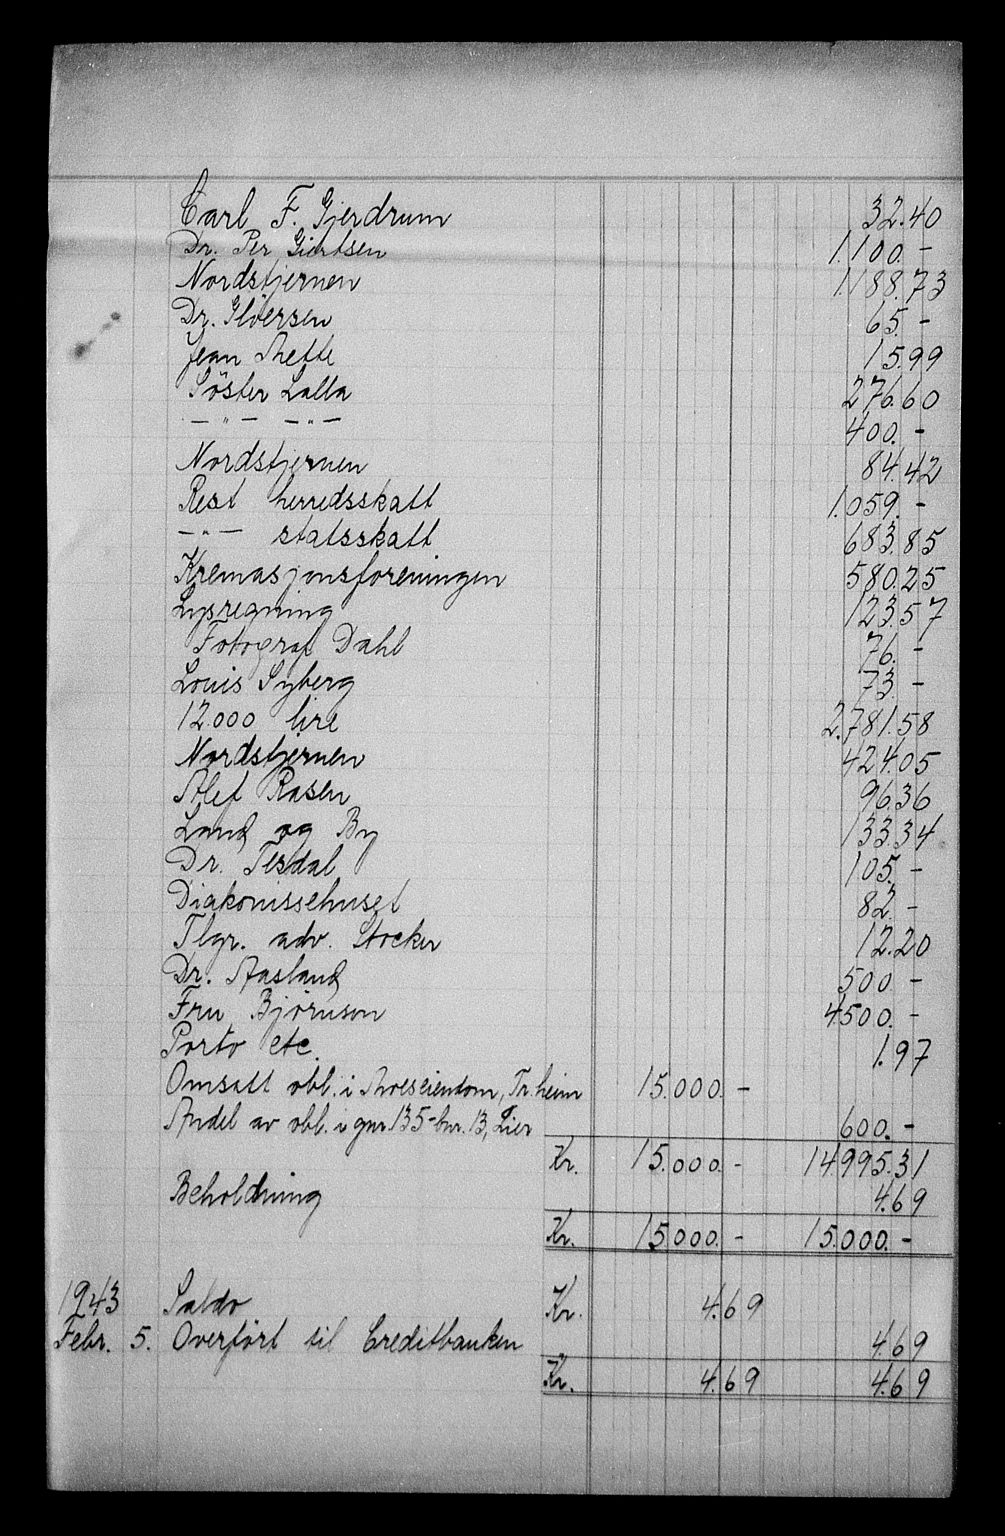 Carl F. Gjerdrum 32.40
Dr. Per Giertsen 1.100.-
Nordstjernen 1.188.73
Dr. 65.-
Jean Mette 15.99
Söster Lalla 276.60
-"- -"- 400.-
Nordstjernen 84.42
Rest herredsskatt 1.059.-
-"- statsskatt 683.85
Kremasjonsforeningen 580.25
Lysregning 123.57
Fotograf Dahl 76.-
Louis Syberg 73.-
12.000 lire 2.781.58
Nordstjernen 424.05
Rosen 96.36
Land og By 133.34
Dr. Tesdal 105.-
Diakonissehuset 82.-
Tlgr. adv. Stocker 12.20
Dr. Aasland 500.-
Fru Bjørnson 4500.-
Porto etc. 1.97
Omsatt obl. i Tr.heim 15.000.-
Andel av obl. i gnr. 135-bnr. 13, Lier 600.-
Kr. 15.000.- 14995.31
Beholdning 4.69
Kr. 15.000.- 15.000.-
1943 Saldo Kr. 4.69
Febr. 5. Overført til Creditbanken 4.69
Kr. 4.69 4.69